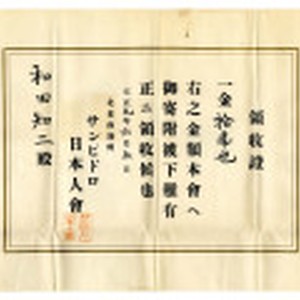 領收證
一金拾弗也
右之金額本會へ
御寄附被下難有
正ニ領收候也
サンピドロ
日本人會
和田知二殿